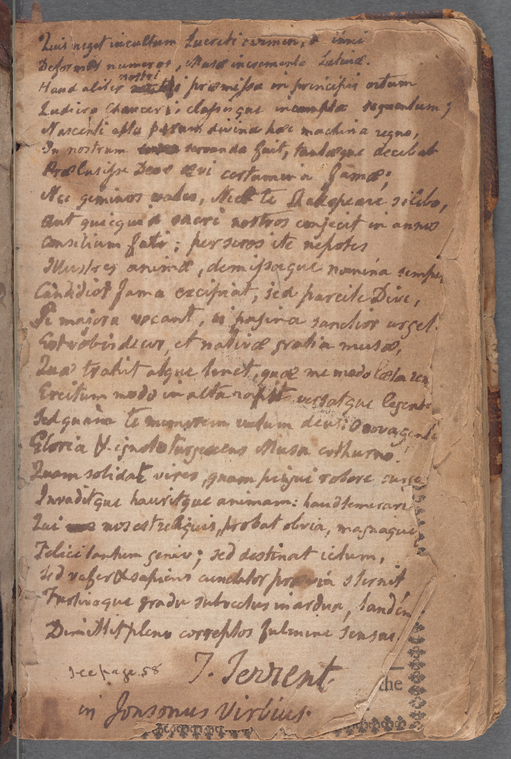 Quis neget incultum Lucreti carmen, & Enni
Deformes numeros, Musæ incrementa Latinæ.
Haud aliter nostri præmissa in principis ortum
Ludicra Chauceri, classisque incompta sequentum;
Nascenti apta parum divina hæc machina regno,
In nostrum servanda fuit, tantæque decebat
Prælusisse Deos ævi certamina famæ;
Nec geminos vates, nec te Shakspeare silebo,
Aut quicquid sacri nostros conjecit in annos
Consilium fati; per seros ite nepotes
Illustres animæ, demissaque nomina semper
Candidior fama excipiat, sed parcite Divi,
Si majora vocant, si pagina sanctior urget.
Est vobis decor, et nativæ gratia musæ,
Quæ trahit atque tenet, quæ me modo læta
Excitum modo in alta rapit versatque legentem
Sed quam te memorem vatum deus! O nova gentis
Gloria & ignoto turgescens Musa cothurno!
Quam solidat vires, quam pingui robore surgens
Invaditque hauritque animam: haud temerarius
Qui nos est reliquis, probat obvia, magnaque
Felici tantum genio; sed destinat ictum,
Sed vafer & sapiens cunctator prœvia sternit
Furtivoque gradu subvectus in ardua, tandem
Dimittit pleno correptos fulmine sensus.
See page 58 J. Terrent
in Jonsonus Virbius.
the